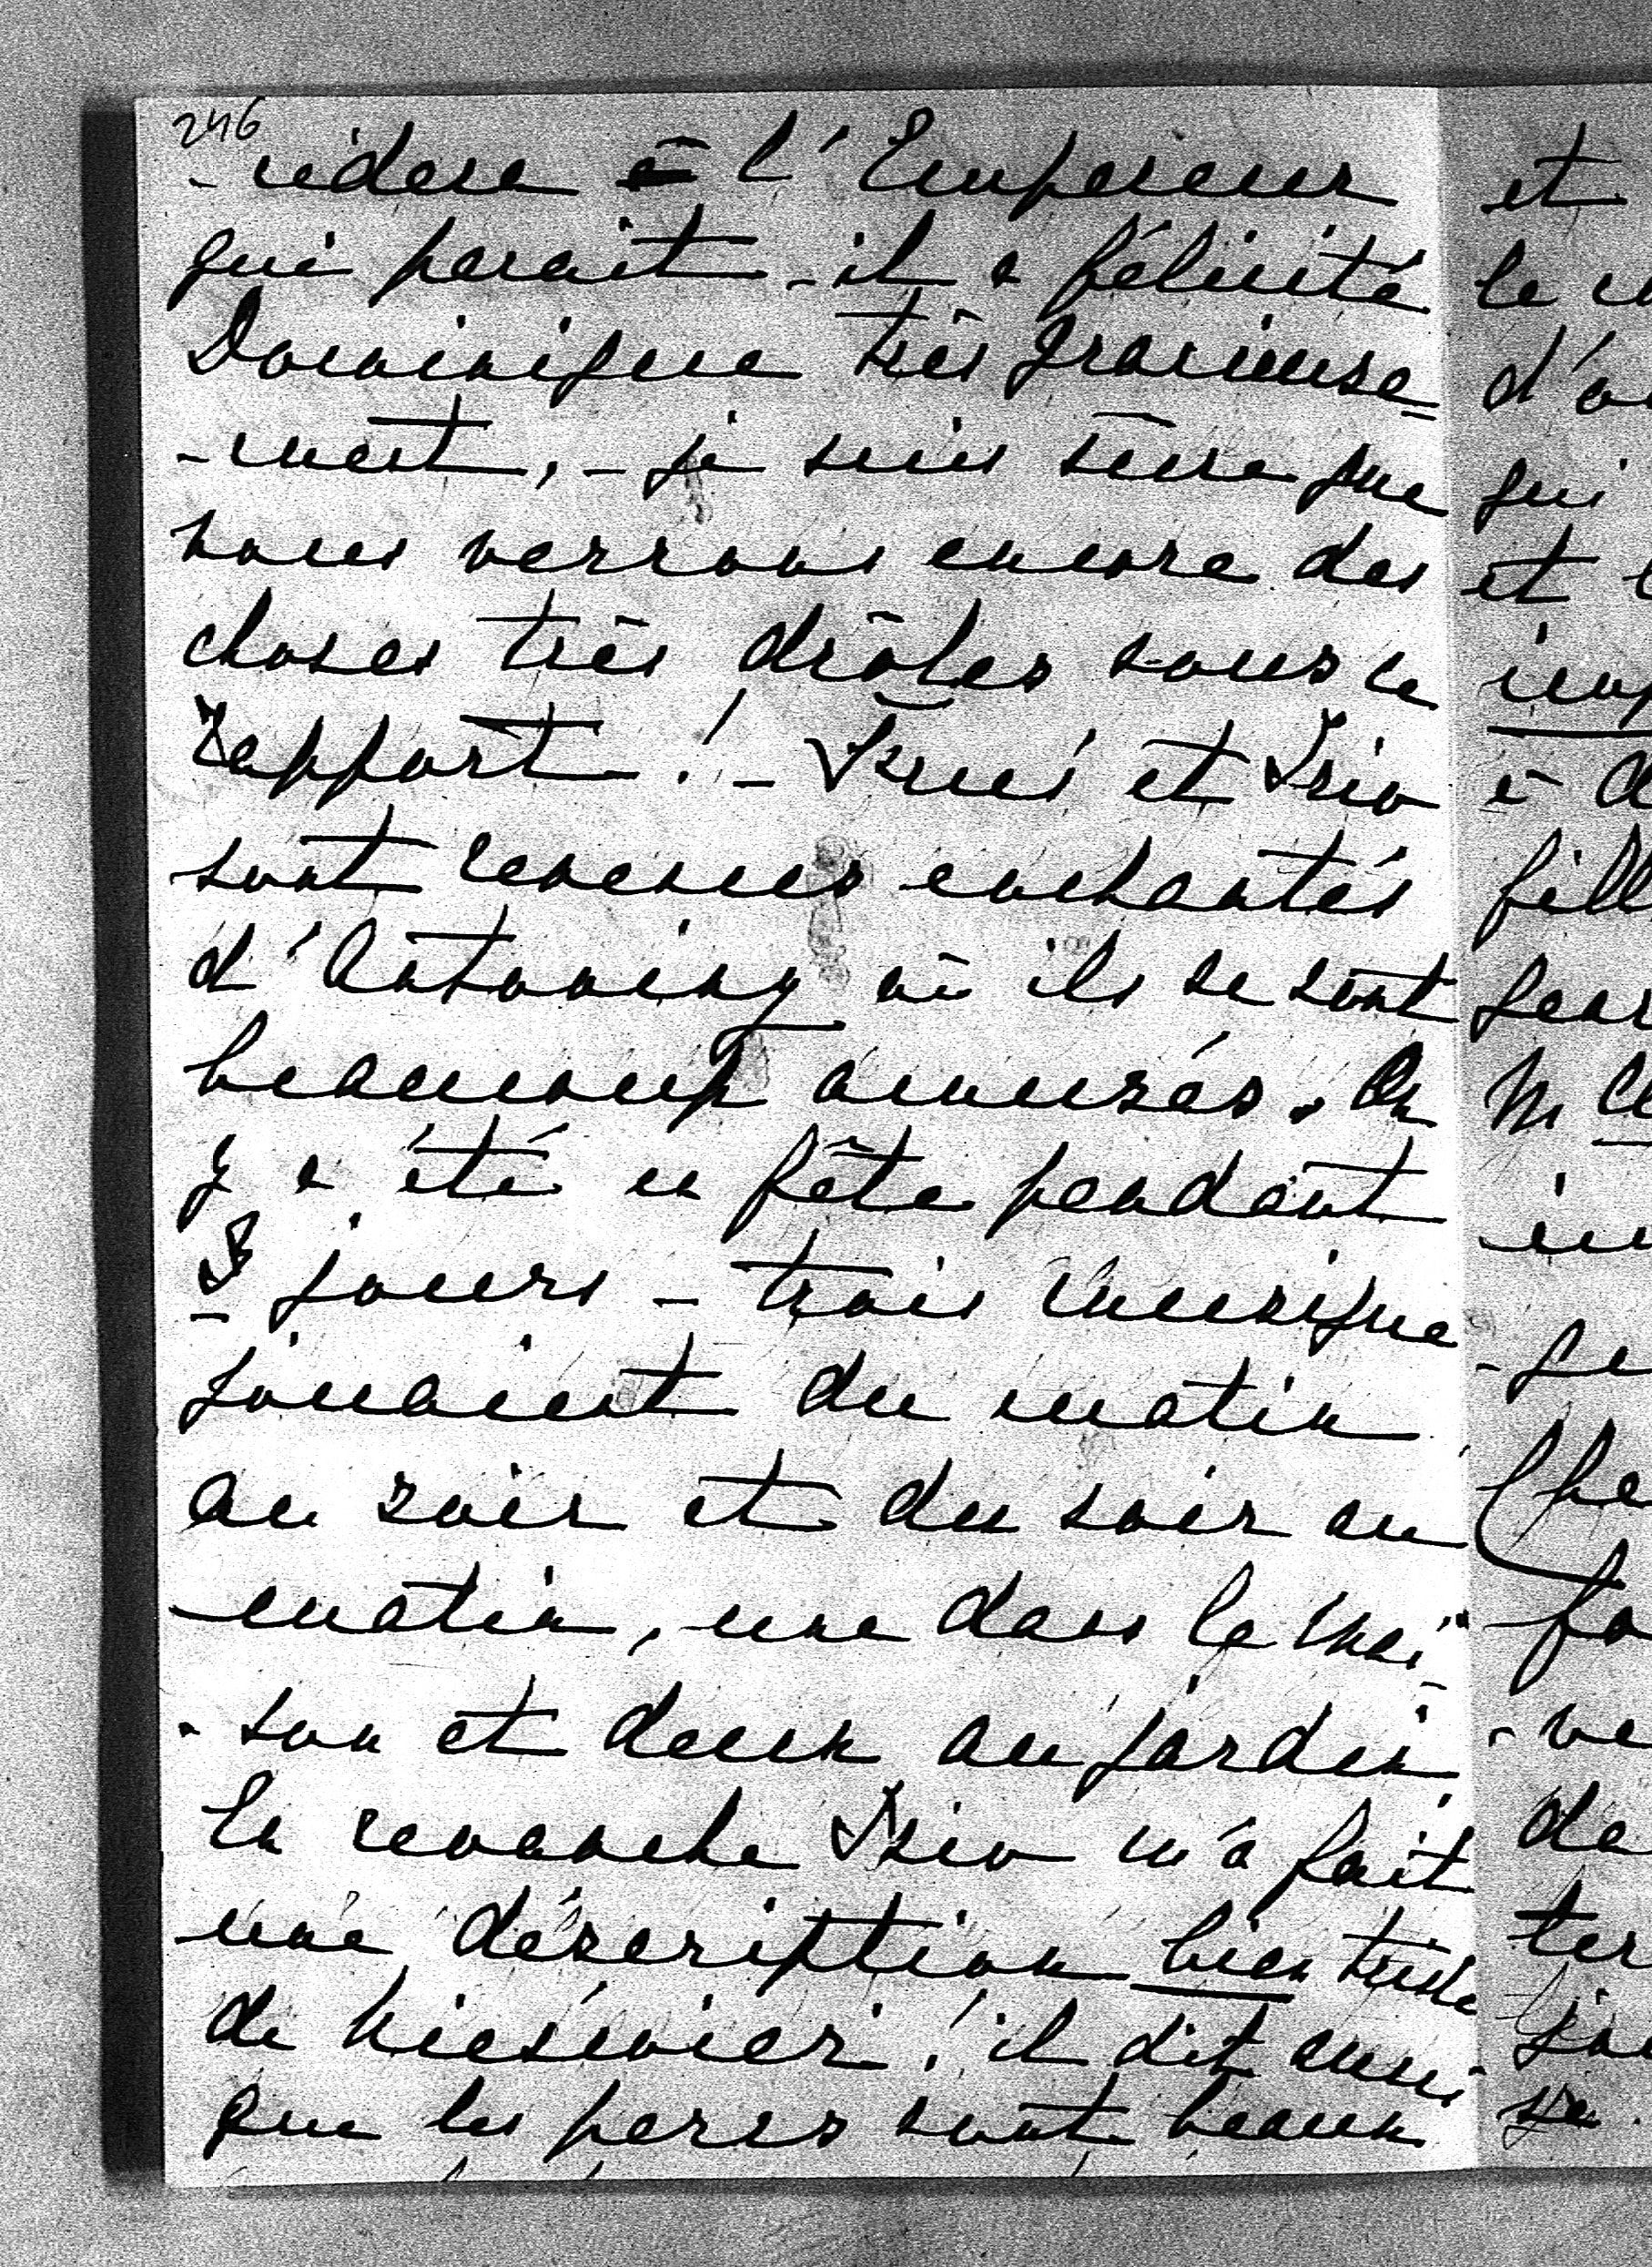 246
-sidera à l'Empereur
qui parait-il a félicité
Dominique très gracieuse
-ment, - je suis sûre que
nous verrons encore des
choses très drôles sous ce
rapport! - et
sont revenus enchantés
d'Antoniny où ils se sont
beaucoup amusés. On
y a été en fête pendant
8 jours - trois musique
jouaient du matin
au soir et du soir au
matin, une dans la mai
-son et deux au jardin
En revanche m'a fait
une déscription bien triste
de ! il dit aussi
que les parcs sont beaux
et
d'a
qui
et
à
fill
de